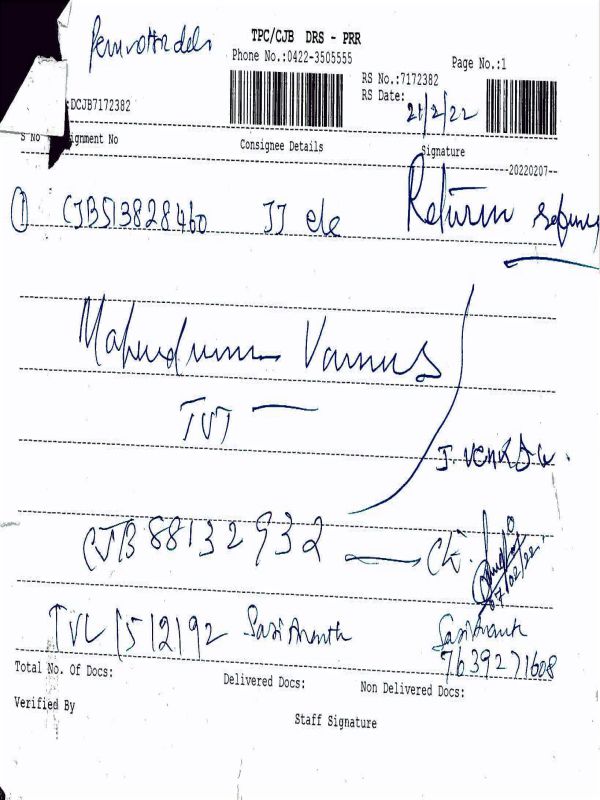 TPC/CJB DRS - PRR
Phone No.:0422-3505555
Page No.:1
RS No.:7172382
RS Date:
21/2/22
:DCJB7172382
S No ignment No Consignee Details Signature
--20220207--
① CJB513828460 JJ ele Return
Vamus
TVT
J. Venkasu.
CJB 88132932 — Ck.
07/02/22.
TVL 1512192 Sasi Ananth Sasi Ananth
7639271608
Total No. Of Docs: Delivered Docs: Non Delivered Docs:
Verified By Staff Signature